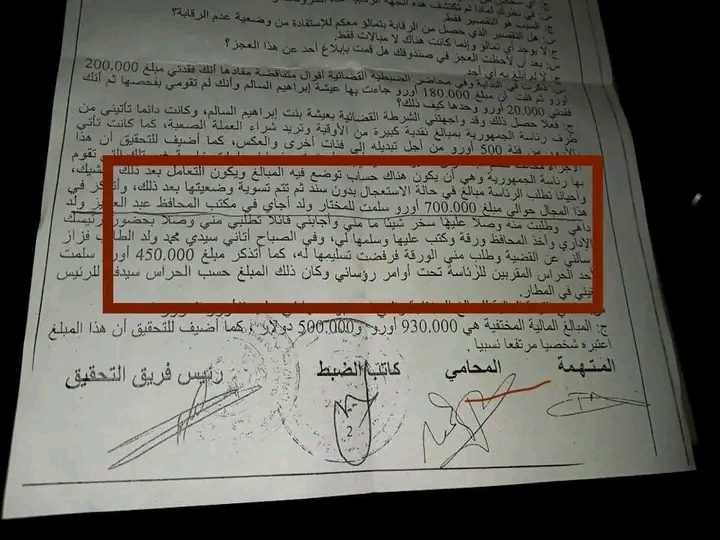 س: في نظرك لماذا لم تكتشف هذه الجهة الرقابية
ج: السبب هو التقصير فقط.
س: هل التقصير الذي حصل من الرقابة بتمالؤ معكم للإستفادة من وضعية عدم الرقابة؟
ج: لا يوجد أي تمالؤ وإنما كانت هناك لا مبالات فقط.
س: بعد أن لاحظت العجز في صندوقك هل قمت بإبلاغ أحد عن هذا العجز؟
ج: لا لم أبلغ به أي أحد.
س: ذكرت في البداية وفي محاضر الضبطية القضائية أقوال متناقضة مفادها أنك فقدتي مبلغ 200.000
أورو ثم قلت أن مبلغ 180.000 أورو جاءت بها عيشة إبراهيم السالم وأنك لم تقومي بفحصها ثم أنك
فقدتي 20.000 أورو وحدها كيف ذلك؟
ج: فعلا حصل ذلك وقد واجهتني الشرطة القضائية بعيشة بنت إبراهيم السالم، وكانت دائما تأتيني من
طرف رئاسة الجمهورية بمبالغ نقدية كبيرة من الأوقية وتريد شراء العملة الصعبة، كما كانت تأتي
من فئة 500 أورو من أجل تبديله إلى فئات أخرى والعكس، كما أضيف للتحقيق أن هذا
الإجراء تقوم
بها رئاسة الجمهورية وهي أن يكون هناك حساب توضع فيه المبالغ ويكون التعامل بعد ذلك بالشيك،
وأحيانا تطلب الرئاسة مبالغ في حالة الاستعجال بدون سند ثم تتم تسوية وضعيتها بعد ذلك، وأتذكر في
هذا المجال حوالي مبلغ 700.000 أورو سلمت للمختار ولد أجاي في مكتب المحافظ عبد العزيز ولد
داهي وطلبت منه وصلا عليها سخر شيئا ما مني وأجابني قائلا تطلبي مني وصلا بحضور رئيسك
الإداري وأخذ المحافظ ورقة وكتب عليها وسلمها لي، وفي الصباح أتاني سيدي محمد ولد الطالب فزاز
سألني عن القضية وطلب مني الورقة فرفضت تسليمها له، كما أتذكر مبلغ 450.000 أورو سلمت
أحد الحراس المقربين للرئاسة تحت أوامر رؤسائي وكان ذلك المبلغ حسب الحراس سيدفع للرئيس
في المطار.
ج: المبالغ المالية المختفية هي 930.000 أورو و500.000 دولار، كما أضيف للتحقيق أن هذا المبلغ
أعتبره شخصيا مرتفعا نسبيا.
المتهمة المحامي كاتب الضبط رئيس فريق التحقيق
2